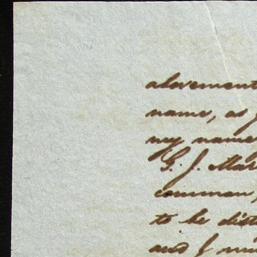 abovement
name, as
my name
G. J. Mar
common,
to be dist
and I mi